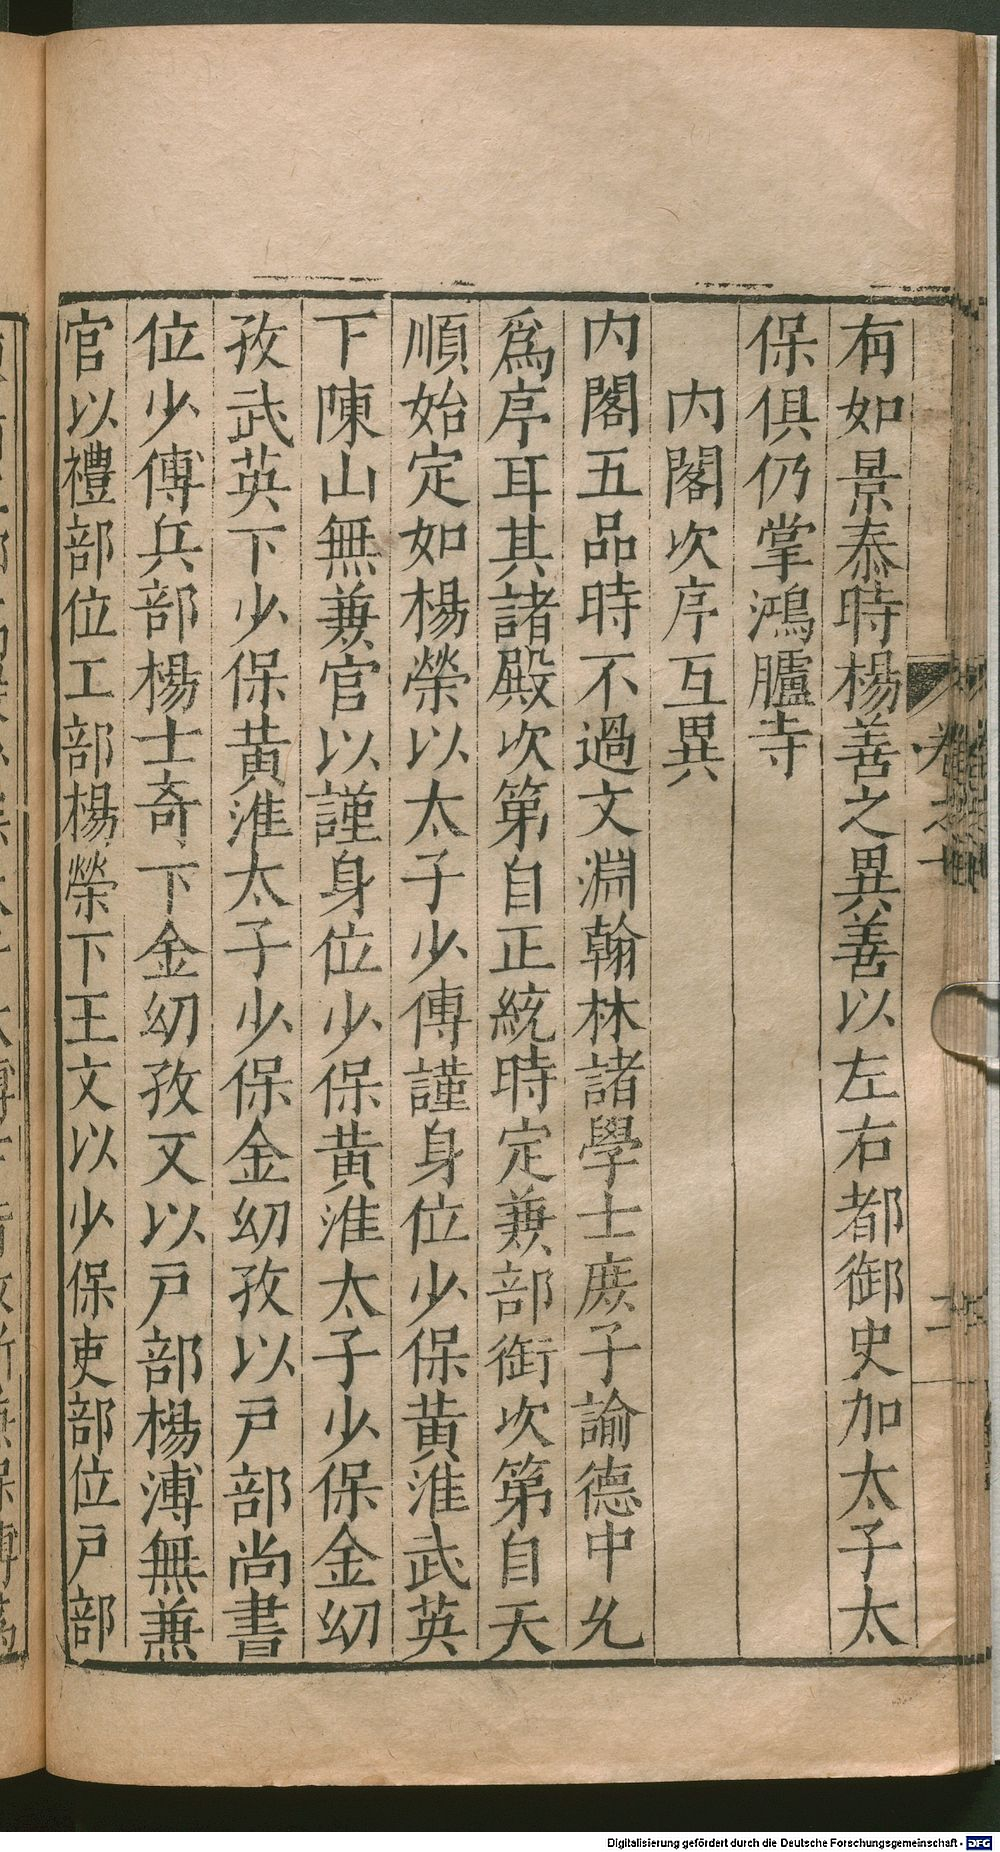 有如景泰時楊善之異善以左右都御史加太子太
保俱仍掌鴻臚寺
内閣次序互異
内閣五品時不過文淵翰林諸學士庻子諭德中允
爲序耳其諸殿次第自正統時定兼部銜次第自天
順始定如楊榮以太子少傅謹身位少保黄淮武英
下陳山無兼官以謹身位少保黄淮太子少保金幼
孜武英下少保黄淮太子少保金幼孜以戸部尚書
位少傅兵部楊士竒下金幼孜又以戸部楊溥無兼
官以禮部位工部楊榮下王文以少保吏部位戸部
卷之十
二
Digitalisierung gefördert durch die Deutsche Forschungsgemeinschaft - DFG